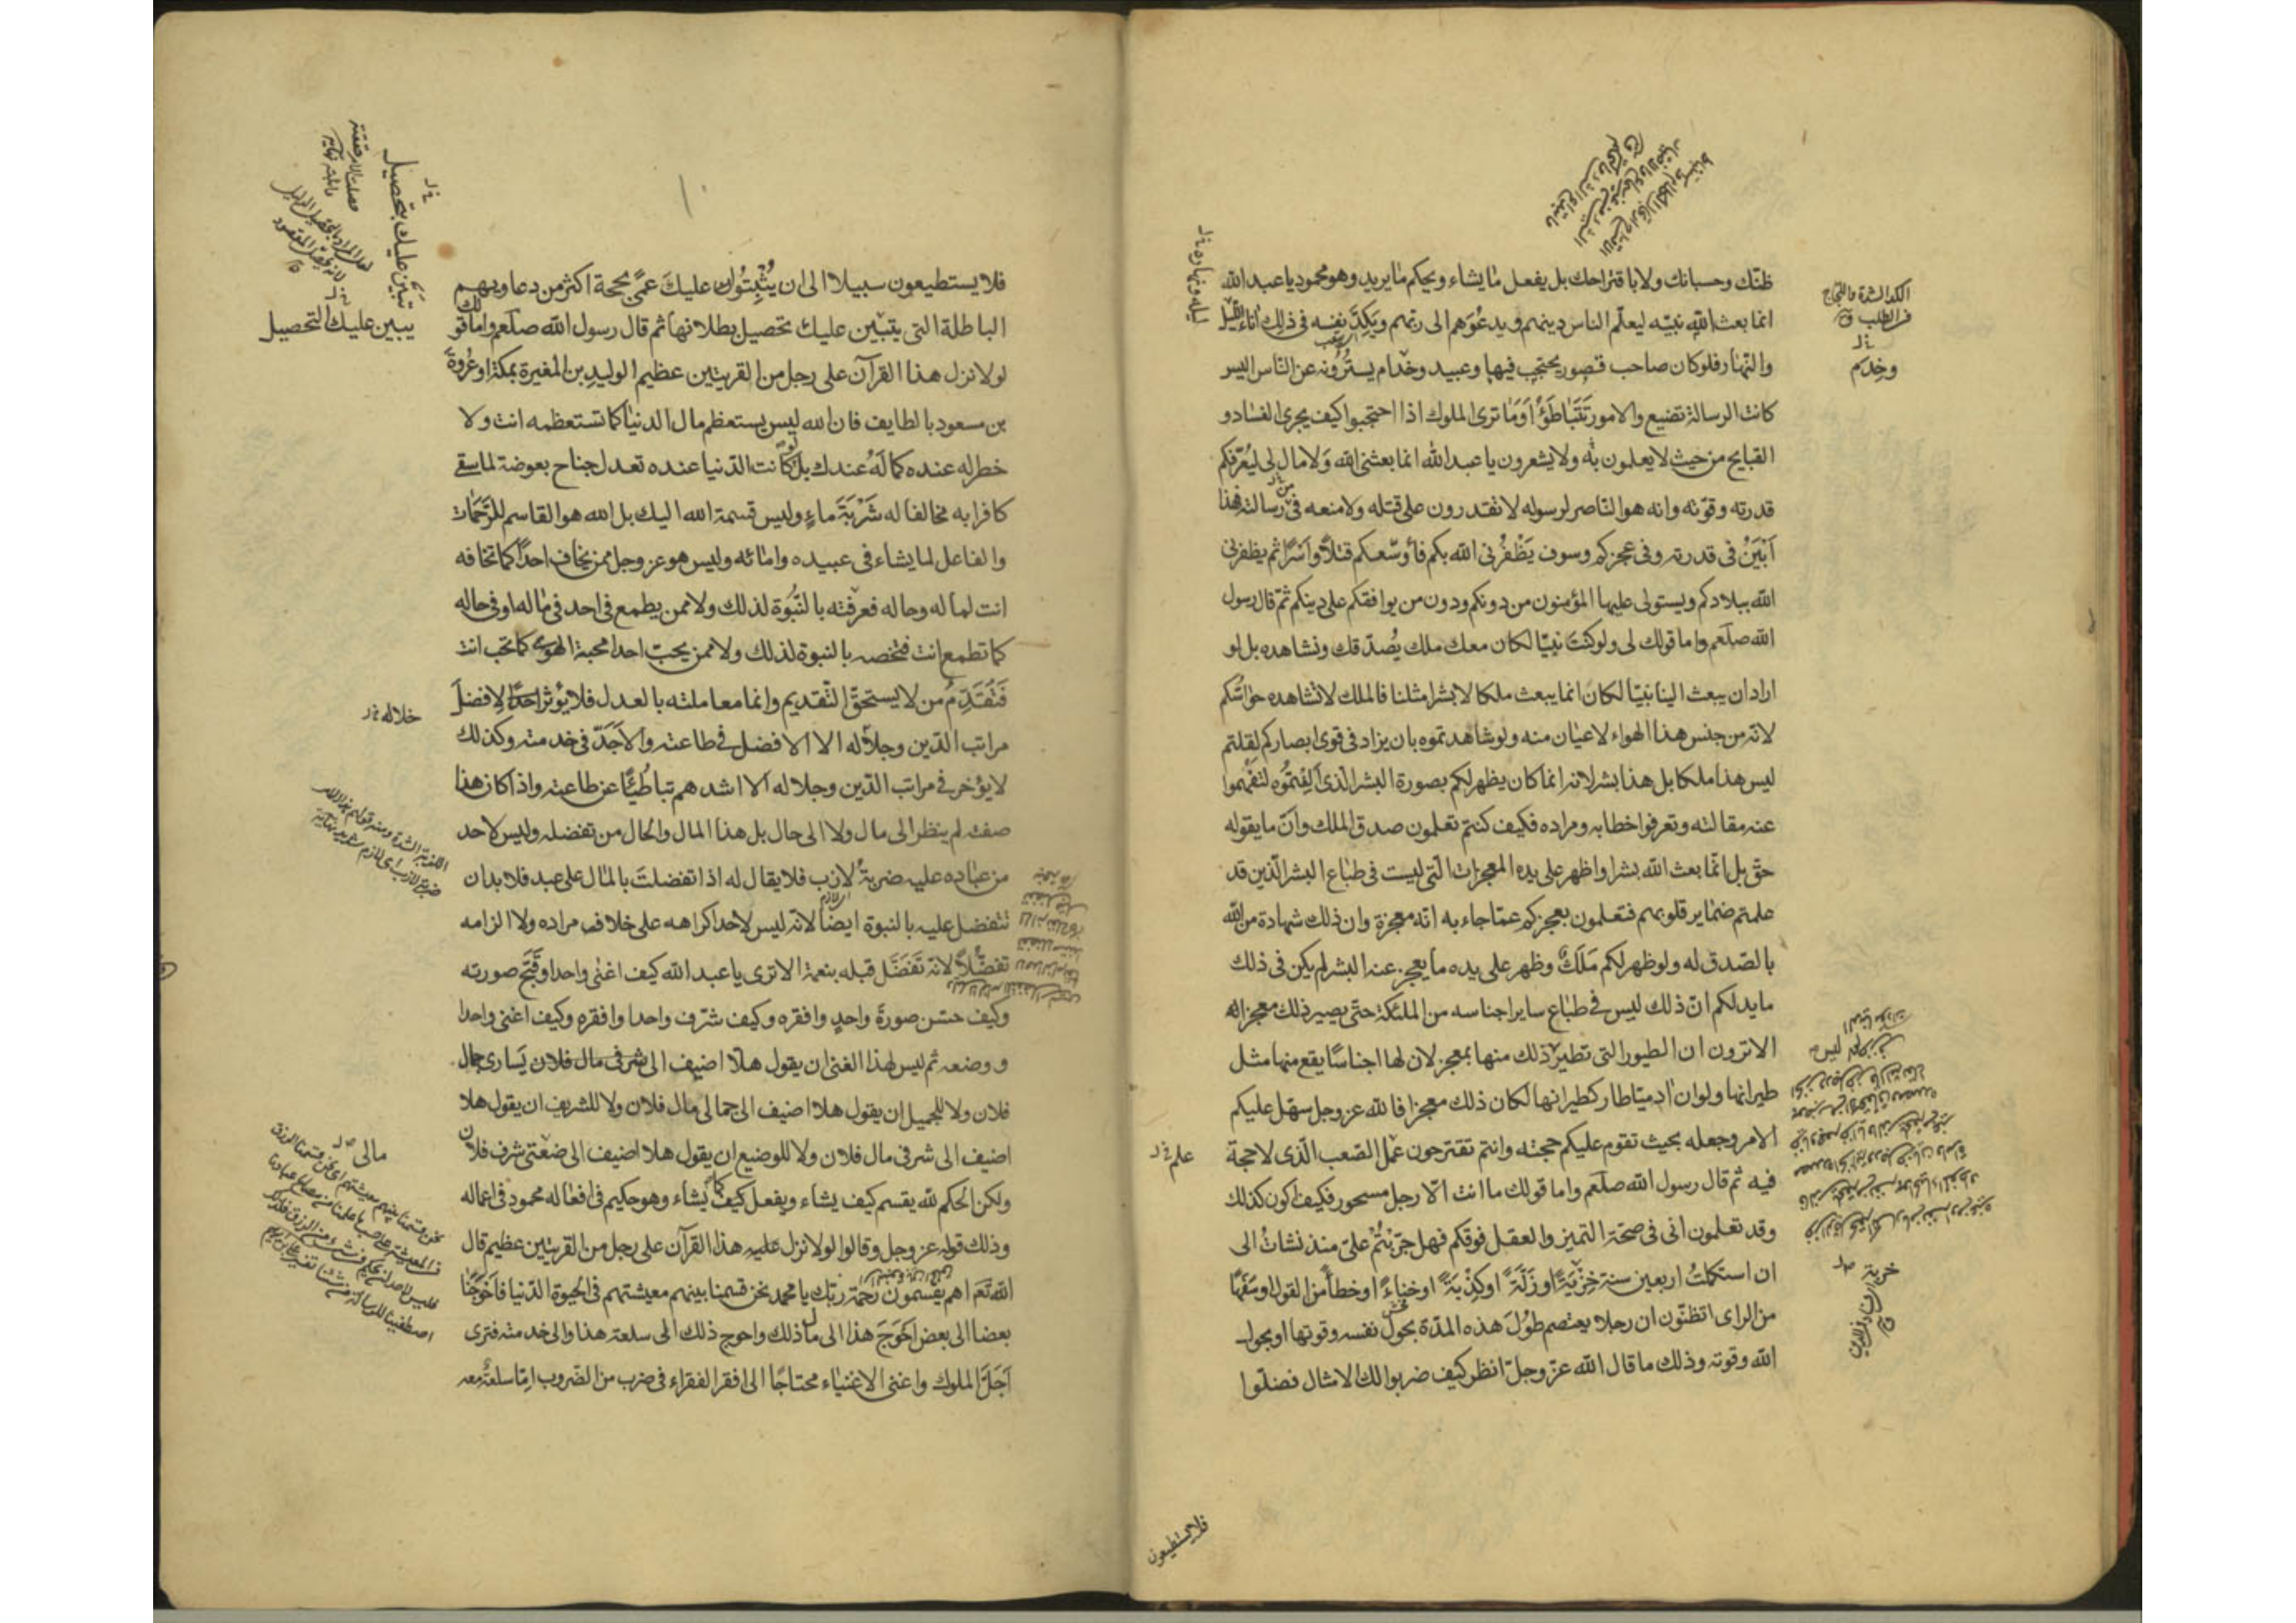 ظنّك وحسبانك ولا باقتراحك بل يفعل ما يشاء ويحكم ما يريد وهو محمود يا عبد الله
انما بعث الله نبيّه ليعلّم الناس دينهم ويدعوهم الى ربّهم ويكدّ نفسه فى ذلك اناء الليل
والنّهار فلو كان صاحب قصور يحتجب فيها وعبيد وخدّام يسترونه عن النّاس اليس
كانت الرسالة تضيع والامور تتباطؤ أوما ترى الملوك اذا احتجبوا كيف يجرى الفساد و
القبايح من حيث لا يعلمون به ولا يشعرون يا عبد الله انما بعثنى الله ولا مال لى ليعرّفكم
قدرته وقوّته وانه هو النّاصر لرسوله لا تقدرون على قتله ولا منعه فى رسالته فهذا
أبين فى قدرته وفى عجزكم وسوف يظفرنى الله بكم فأوسّعكم قتلاً وأسراً ثم يظفرنى
الله ببلادكم ويستولى عليها المؤمنون من دونكم ودون من يوافقكم على دينكم ثم قال رسول
الله صلعم واما قولك لى ولو كنت نبيّا لكان معك ملك يُصدّقك ونشاهده بل لو
اراد ان يبعث الينا نبيّا لكان انما يبعث ملكا لا بشرا مثلنا فالملك لا تشاهده حواسّكم
لانّه من جنس هذا الهواء لا عيان منه ولو شاهدتموه بان يزاد فى قوى ابصاركم لقلتم
ليس هذا ملكا بل هذا بشر لانه انما كان يظهر لكم بصورة البشر الّذى ألفتموه لتفهموا
عنه مقالته وتعرفوا خطابه ومراده فكيف كنتم تعلمون صدق الملك وأنّ ما يقوله
حق بل انّما بعث الله بشرا واظهر على يده المعجزات الّتى ليست فى طباع البشر الّذين قد
علمتم ضماير قلوبهم فتعلمون بعجزكم عمّا جاء به انّه معجزة وان ذلك شهادة من الله
بالصّدق له ولو ظهر لكم مَلَكٌ وظهر على يده ما يعجز عنه البشر لم يكن فى ذلك
ما يدلكم انّ ذلك ليس فى طباع ساير اجناسه من الملئكة حتّى يصير ذلك معجزا له
الا ترون ان الطيور التى تطير ذلك منها بمعجز لان لها اجناسًا يقع منها مثل
طيرانها ولو ان آدميّا طار كطيرانها لكان ذلك معجزا فالله عز وجل سهّل عليكم
الامر وجعله بحيث تقوم عليكم حجته وانتم تقترحون عمل الصّعب الّذى لا حجة
فيه ثم قال رسول الله صلعم واما قولك ما انت الّا رجل مسحور فكيف أكون كذلك
وقد تعلمون انى فى صحّة التميز والعقل فوقكم فهل جرّبتم علىّ منذ نشأت الى
ان استكملت اربعين سنة خزية او زلّة او كذبة او خناء او خطأً من القول او سفها
من الراى اتظنّون ان رجلا يعتصم طول هذه المدّة بحول نفسه وقوتها او بحول
الله وقوته وذلك ما قال الله عزّ وجلّ انظر كيف ضربوا لك الامثال فضلّوا
فلا يستطيعون
ليله ونهاره
الكد الشدة والالحاح
فى الطلب ق
وخدم
علم
خربة
فلا يستطيعون سبيلا الى ان يُثبتوا عليك عمًى بحجة اكثر من دعاويهم
الباطلة التى يتبيّن عليك تحصيل بطلانها ثم قال رسول الله صلعم واما قولك
لولا نزل هذا القرآن على رجل من القريتين عظيم الوليد بن المغيرة بمكة او عُروة
بن مسعود بالطايف فان الله ليس يستعظم مال الدنيا كما تستعظمه انت ولا
خطر له عنده كما له عندك بل لو كانت الدّنيا عنده تعدل جناح بعوضة لما سقى
كافرا به مخالفا له شَرْبَةَ ماءٍ وليس قسمة الله اليك بل الله هو القاسم للرّحمات
والفاعل لما يشاء فى عبيده وامائه وليس هو عز وجل ممن يخاف احدًا كما تخافه
انت لماله وحاله فعرفته بالنّبوّة لذلك ولا ممن يطمع فى احد فى ماله او فى حاله
كما تطمع انت فتخصه بالنبوة لذلك ولا ممن يحبّ احدا محبة الهوى كما تحب انت
فتُقدّم من لا يستحقّ التّقديم وانما معاملته بالعدل فلا يؤثر احدًا لافضل
مراتب الدّين وجلاله الا الافضل فى طاعته والاجدّ فى خدمته وكذلك
لا يؤخر فى مراتب الدّين وجلاله الا اشدهم تباطئًا عن طاعته واذا كان هذا
صفته لم ينظر الى مال ولا الى حال بل هذا المال والحال من تفضله وليس لاحد
من عباده عليه ضربة لازب فلا يقال له اذا تفضلت بالمال على عبد فلا بد ان
تتفضل عليه بالنبوة ايضاً لانّه ليس لاحد اكراهه على خلاف مراده ولا الزامه
تفضّلاً لانّه تفضّل قبله بنعمة الا ترى يا عبد الله كيف اغنى واحدا وقبّح صورته
وكيف حسّن صورة واحدٍ وافقره وكيف شرّف واحدا وافقره وكيف اغنى واحدا
ووضعه ثم ليس لهذا الغنى ان يقول هلّا اضيف الى شرفى مال فلان يسارى جمال
فلان ولا للجميل ان يقول هلا اضيف الى جمالى مال فلان ولا للشريف ان يقول هلا
اضيف الى شرفى مال فلان ولا للوضيع ان يقول هلا اضيف الى ضعتى شرف فلان
ولكن الحكم لله يقسم كيف يشاء ويفعل كيف كما يشاء وهو حكيم فى افعاله محمود فى اعماله
وذلك قوله عز وجل وقالوا لولا نزل عليه هذا القرآن على رجل من القريتين عظيم قال
الله تع اهم يقسمون رحمة ربّك يا محمد نحن قسمنا بينهم معيشتهم فى الحيوة الدّنيا فأحوجنا
بعضا الى بعض احوج هذا الى مال ذلك واحوج ذلك الى سلعة هذا والى خدمته فترى
أجلّ الملوك واغنى الاغنياء محتاجًا الى افقر الفقراء فى ضرب من الضّروب امّا سلعة معه
تبيّن عليك بتحصيل
يبين عليك التحصيل
خلاله
مالى
١٠